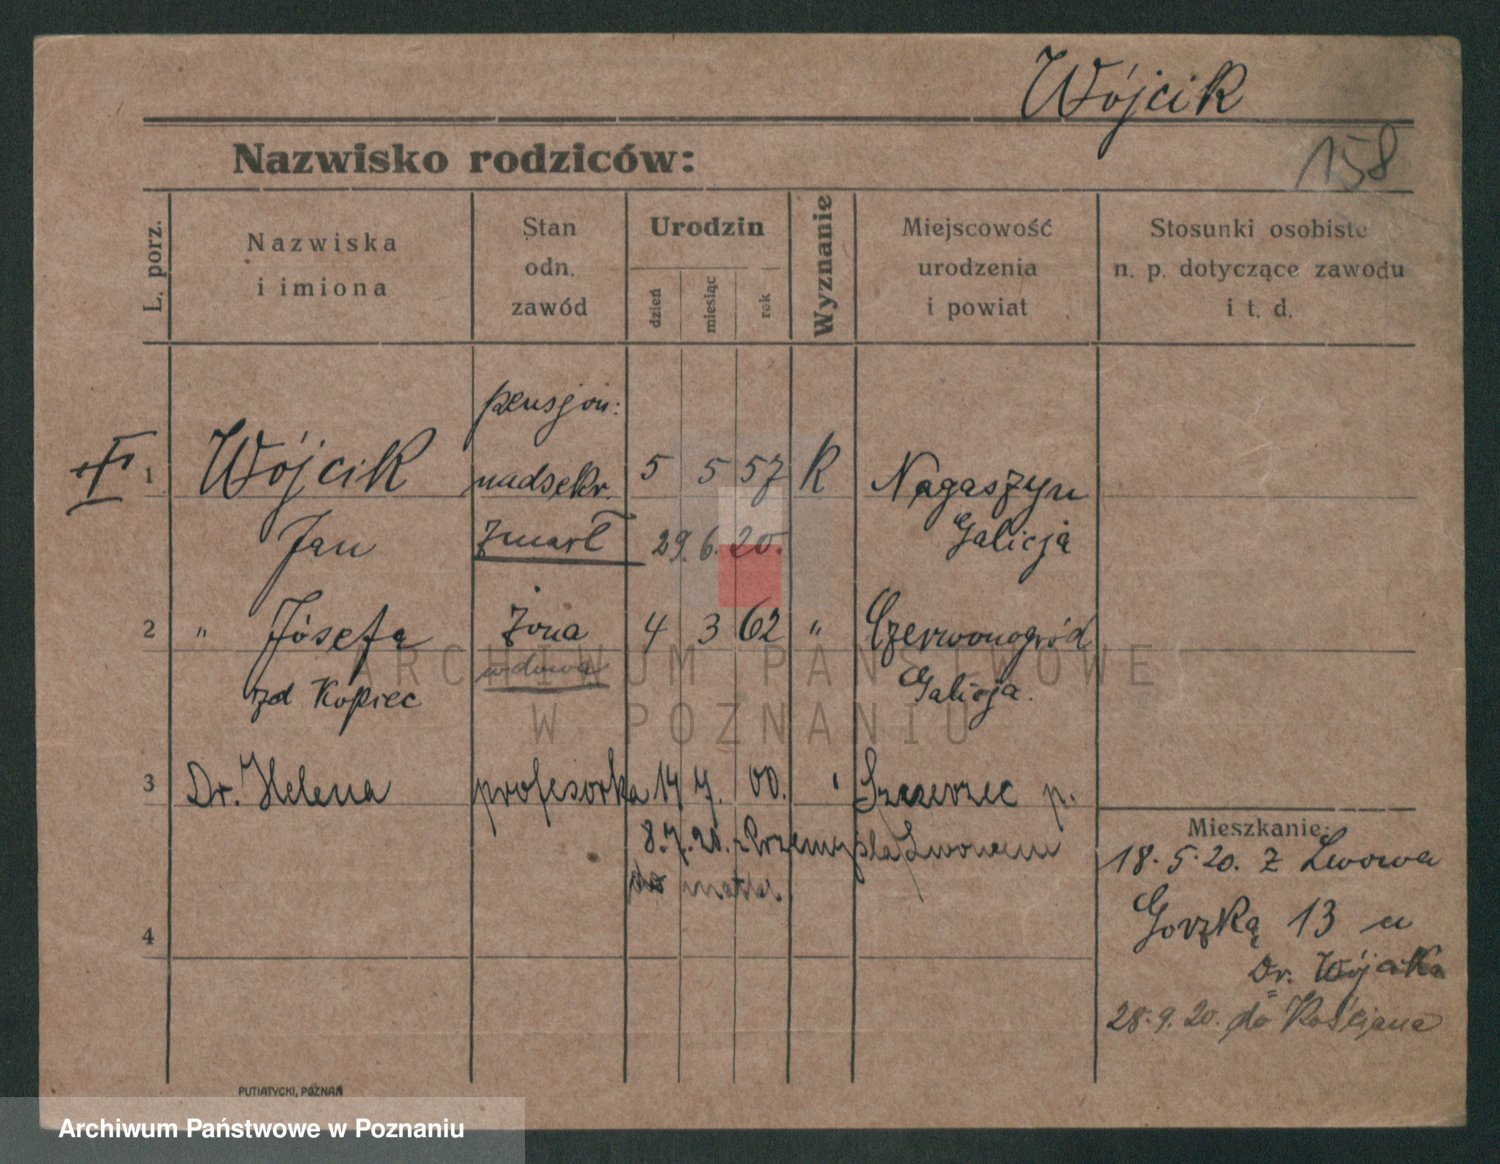 Wójcik
158
Nazwisko rodziców:
L. porz.
Nazwiska
i imiona
Stan
odn.
zawód
Urodzin
dzień
miesiąc
rok
Wyznanie
Miejscowość
urodzenia
i powiat
Stosunki osobiste
n. p. dotyczące zawodu
i t. d.
pensjon:
1 Wójcik nadsekr. 5 5 57 R Nagaszyn
Jan zmarł 29. 6. 20. Galicja
2 " Józefa żona 4 3 62 " Czerwonogród
zd Kopiec wdowa Galicja.
3 Dr. Helena profesorka 14 7. 00. " Szczerzec p.
8.7.20. z Przemyśla Lwowem
do matki.
4
Mieszkanie:
18.5.20. z Lwowa
Gorzką 13 u
Dr. Wójcika
28.9.20. do Kościana
PUTIATYCKI, POZNAŃ
ARCHIWUM PAŃSTWOWE
W POZNANIU
Archiwum Państwowe w Poznaniu